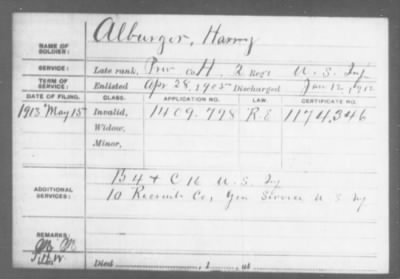 Alburger, Harry
NAME OF SOLDIER:
SERVICE: Late rank, Priv Co H, 2 Reg't U. S. Inf
TERM OF SERVICE: Enlisted Apr 28, 1905 Discharged Jan 12, 1912
DATE OF FILING. CLASS. APPLICATION NO. LAW. CERTIFICATE NO.
1913 May 15 Invalid, 1409.798 R.E 1174,346
Widow,
Minor,
ADDITIONAL SERVICES: B 4 + C 16 U. S. Inf
10 Recruit Co, Gen Service U S Inf
REMARKS:
Died 1 , at